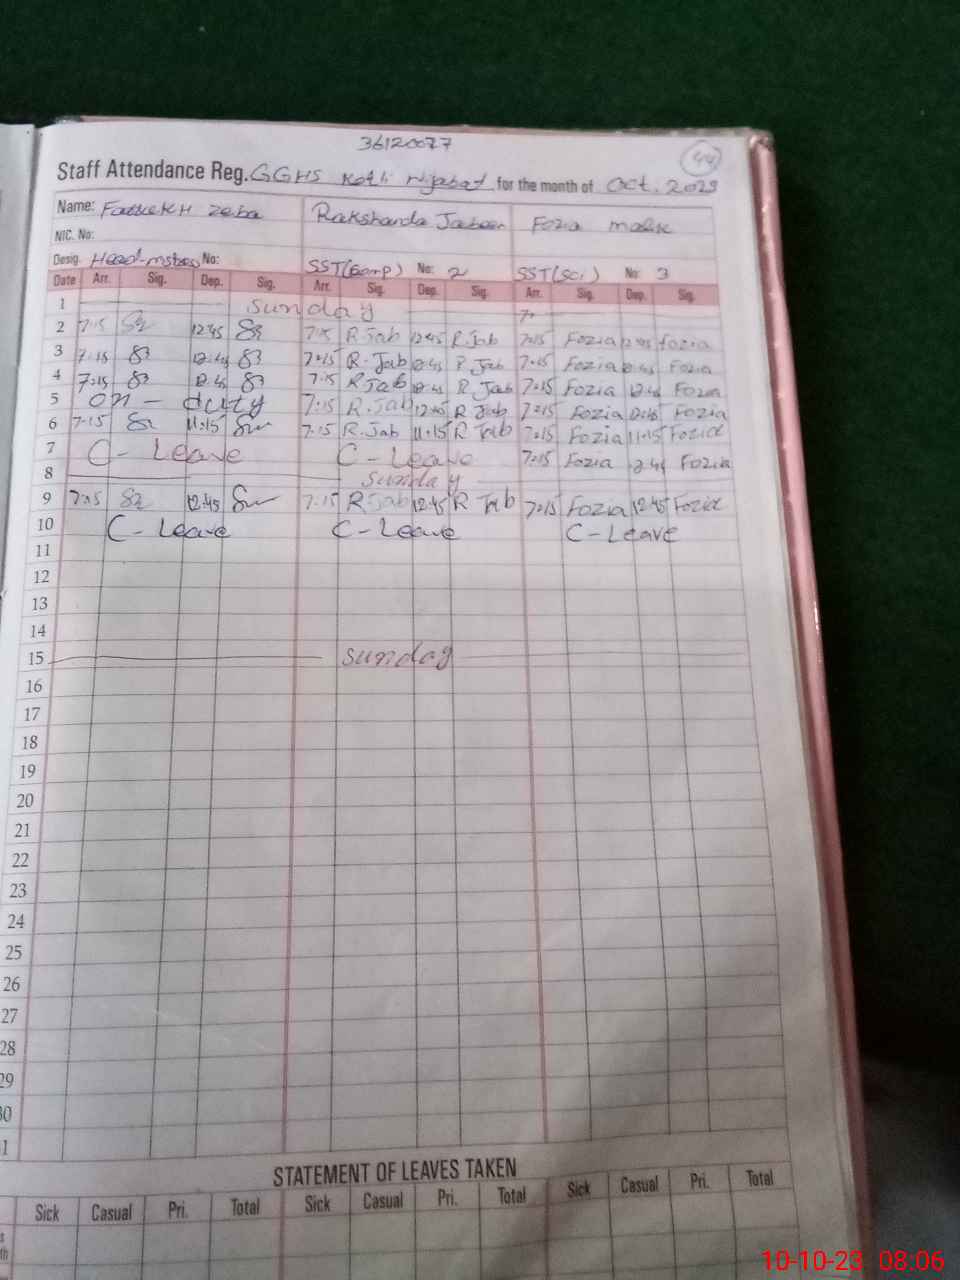 36120077
44
Staff Attendance Reg. GGHS Kotli Nijabat for the month of Oct. 2023
Name: Zeba Rakshanda Jabeen Fozia malik
NIC. No:
Desig. Head-mstres No: SST(Comp) No: 2 SST(Sci) No: 3
Date Arr. Sig. Dep. Sig. Arr. Sig. Dep. Sig. Arr. Sig. Dep. Sig.
1 Sunday 7-
2 7:15 12:45 7:15 R Jab 12:45 R Jab 7:15 Fozia 12:45 Fozia
3 7:15 12:45 7:15 R. Jab 12:45 R Jab 7:15 Fozia 12:45 Fozia
4 7:15 12:45 7:15 R Jab 12:45 R Jab 7:15 Fozia 12:45 Fozia
5 on - duty 7:15 R. Jab 12:45 R Jab 7:15 Fozia 12:45 Fozia
6 7:15 11:15 7:15 R. Jab 11:15 R Jab 7:15 Fozia 11:15 Fozia
7 C - Leave C - Leave 7:15 Fozia 12:45 Fozia
8 Sunday
9 7:15 12:45 7:15 R Jab 12:45 R Jab 7:15 Fozia 12:45 Fozia
10 C - Leave C - Leave C - Leave
11
12
13
14
15 Sunday
16
17
18
19
20
21
22
23
24
25
26
27
28
29
30
1
STATEMENT OF LEAVES TAKEN
Sick Casual Pri. Total Sick Casual Pri. Total Sick Casual Pri. Total
10-10-23 08:06